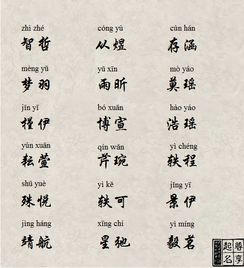 zhì zhé cóng yù cún hán
智哲 从煜 存涵
mèng yǔ yǔ xīn mò yáo
梦羽 雨昕 莫瑶
jǐn yī bó xuān hào yáo
槿伊 博宣 浩瑶
yún xuān qín wǎn yì chéng
耘萱 芹琬 轶程
shū yuè yì kě jǐng yī
殊悦 轶可 景伊
jìng háng xīng chí yì míng
靖航 星驰 毅茗
起名